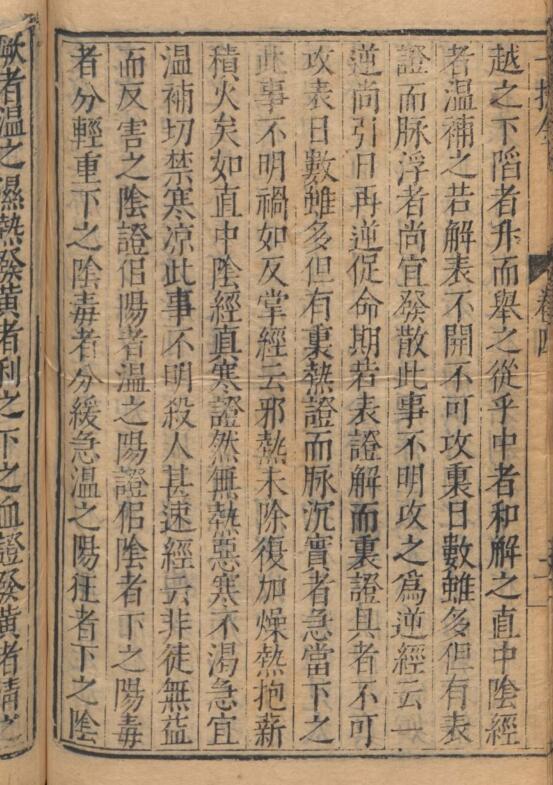 卷四
越之下陷者升而舉之從乎中者和解之直中陰經
者溫補之若解表不開不可攻裏日數雖多但有表
證而脉浮者尚宜發散此事不明攻之爲逆經云一
逆尚引日再逆促命期若表證解而裏證具者不可
攻表日數雖多但有裏熱證而脉沉實者急當下之
此事不明禍如反掌經云邪熱未除復加燥熱抱薪
積火矣如直中陰經真寒證然無熱惡寒不渴急宜
温補切禁寒凉此事不明殺人甚速經云非徒無益
而反害之陰證佀陽者溫之陽證佀陰者下之陽毒
者分輕重下之陰毒者分緩急溫之陽狂者下之陰
厥者溫之濕熱發黃者利之下之血證發黃者清之